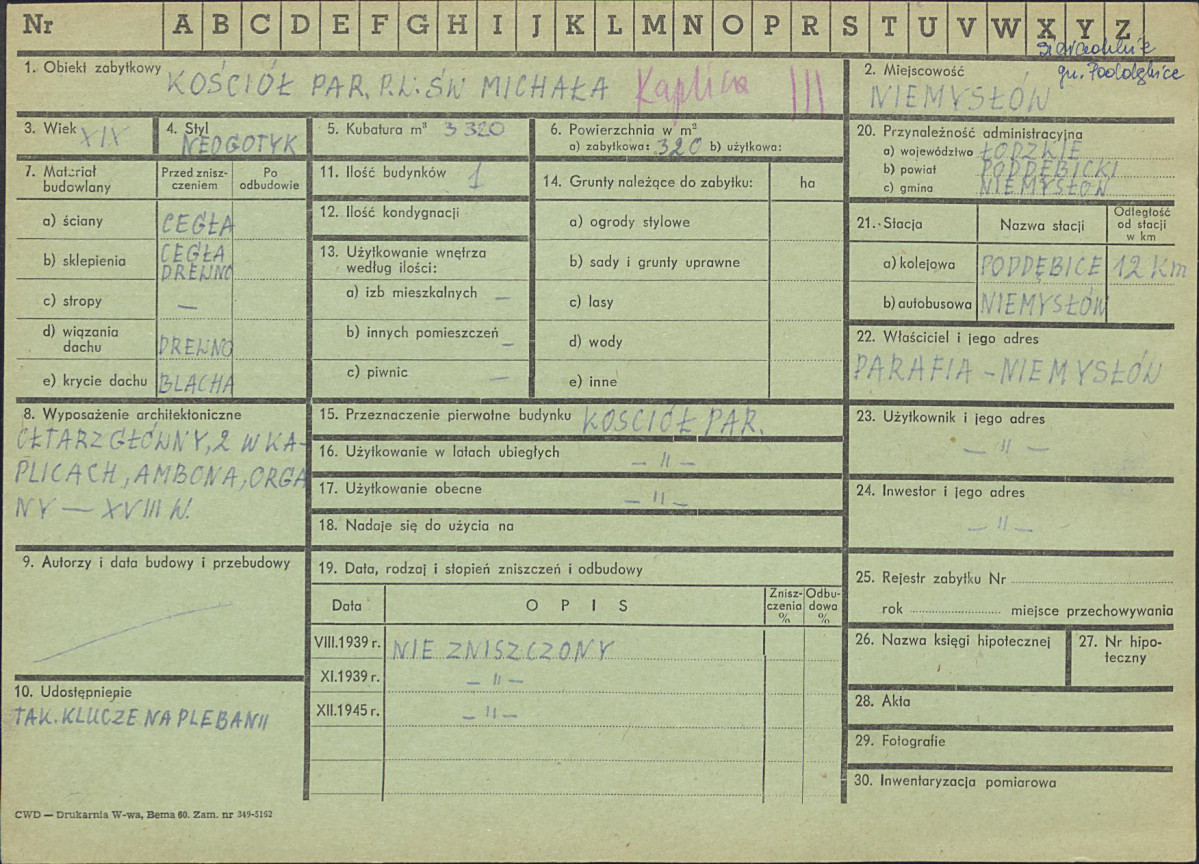 Nr A B C D E F G H I J K L M N O P R S T U V W X Y Z
gm. Poddębice
1. Obiekt zabytkowy KOŚCIÓŁ PAR. P.W. ŚW MICHAŁA Kaplica III
2. Miejscowość
NIEMYSŁÓW
3. Wiek XIX
4. Styl
NEOGOTYK
5. Kubatura m³ 3 320
6. Powierzchnia w m²
a) zabytkowa: 320 b) użytkowa:
20. Przynależność administracyjna
a) województwo ŁÓDZKIE
b) powiat PODDĘBICKI
c) gmina NIEMYSŁÓW
7. Materiał budowlany
Przed znisz-
czeniem
Po
odbudowie
a) ściany CEGŁA
b) sklepienia CEGŁA
DREWNO
c) stropy —
d) wiązania
dachu DREWNO
e) krycie dachu BLACHA
11. Ilość budynków 1
12. Ilość kondygnacji
13. Użytkowanie wnętrza
według ilości:
a) izb mieszkalnych —
b) innych pomieszczeń —
c) piwnic —
14. Grunty należące do zabytku: ha
a) ogrody stylowe
b) sady i grunty uprawne
c) lasy
d) wody
e) inne
21. Stacja
Nazwa stacji
Odległość
od stacji
w km
a) kolejowa PODDĘBICE 12 Km
b) autobusowa NIEMYSŁÓW
22. Właściciel i jego adres
PARAFIA – NIEMYSŁÓW
8. Wyposażenie architektoniczne
OŁTARZ GŁÓWNY, 2 W KA-
PLICACH, AMBONA, ORGA
NY — XVIII W.
15. Przeznaczenie pierwotne budynku KOŚCIÓŁ PAR.
16. Użytkowanie w latach ubiegłych — " —
17. Użytkowanie obecne — " —
18. Nadaje się do użycia na
23. Użytkownik i jego adres
— " —
24. Inwestor i jego adres
— " —
9. Autorzy i data budowy i przebudowy
19. Data, rodzaj i stopień zniszczeń i odbudowy
Data
O P I S
Znisz-
czenia
%
Odbu-
dowa
%
VIII.1939 r. NIE ZNISZCZONY
XI.1939 r. — " —
XII.1945 r. — " —
25. Rejestr zabytku Nr
rok miejsce przechowywania
26. Nazwa księgi hipotecznej
27. Nr hipo-
teczny
10. Udostępnienie
TAK. KLUCZE NA PLEBANII
28. Akta
29. Fotografie
30. Inwentaryzacja pomiarowa
CWD — Drukarnia W-wa, Bema 60. Zam. nr 349-5162